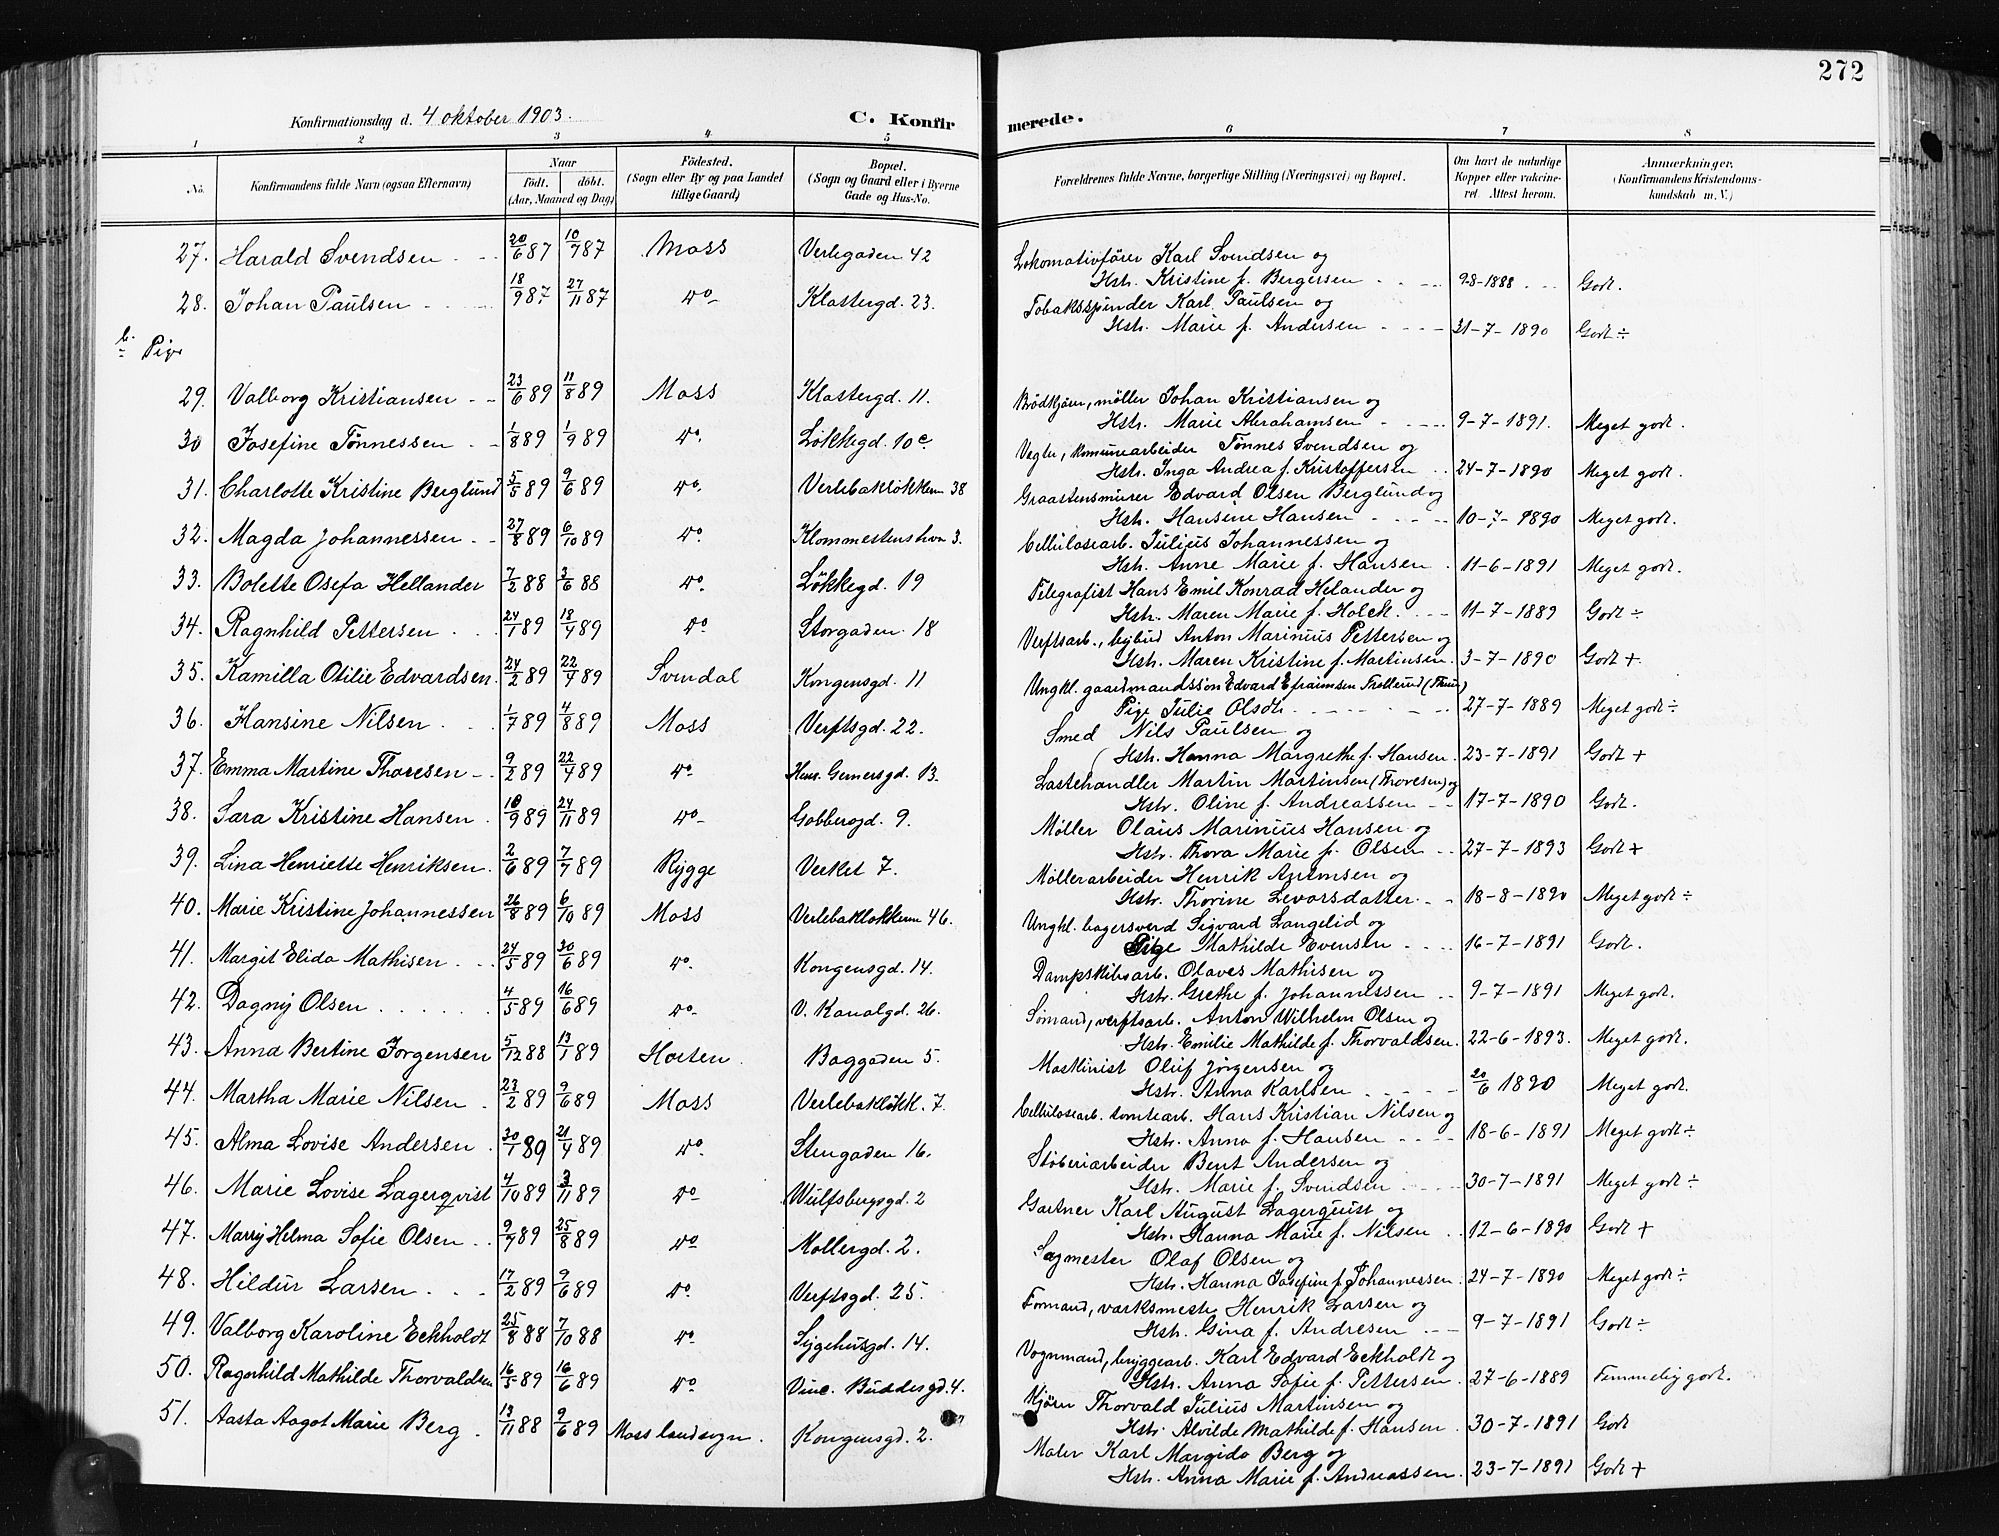 272
Konfirmationsdag d. 4 oktober 1903.
C. Konfir
merede.
1 2 3 4 5
6 7 8
No. Konfirmandens fulde Navn (ogsaa Efternavn)
Naar
födt. döbt.
(Aar, Maaned og Dag)
Födested.
(Sogn eller By og paa Landet
tillige Gaard)
Bopæl.
(Sogn og Gaard eller i Byerne
Gade og Hus-No.
Forældrenes fulde Navne, borgerlige Stilling (Næringsvei) og Bopæl.
Om havt de naturlige
Kopper eller vakcine-
ret. Attest herom.
Anmærkninger.
(Konfirmandens Kristendoms-
kundskab m. V.)
27. Harald Svendsen 20/6 87 10/7 87 Moss Verlegaden 42
Lokomotivförer Karl Svendsen og
Hstr. Kristine f. Bergersen 9-8-1888 Godt.
28. Johan Paulsen 18/9 87. 27/11 87 do Klostergd. 23.
Tobaksspinder Karl Paulsen og
Hstr. Marie f. Andersen 31-7-1890 Godt ÷
b. Pige
29. Valborg Kristiansen 23/6 89 11/8 89 Moss Klostergd. 11.
Brödkjörer, möller Johan Kristiansen og
Hstr. Marie Abrahamsen 9-7-1891. Meget godt.
30 Josefine Tönnessen 1/8 89 1/9 89 do. Lökkegd. 10c
Vegter, komunearbeider Tönnes Svendsen og
Hstr. Inga Andrea f. Kristoffersen 24-7-1890 Meget godt.
31. Charlotte Kristine Berglund 3/5 89 9/6 89 do. Verlebaklökken 38
Graastensmurer Edvard Olsen Berglund og
Hstr. Hansine Hansen 10-7-1890 Meget godt.
32. Magda Johannessen 27/8 89 6/10 89 do. Klommestenshvn 3.
Cellulosearb. Julius Johannessen og
Hstr. Anne Marie f. Hansen 11-6-1891 Meget godt.
33. Bolette Osefa Hellander 7/2 88 3/6 88 do. Lökkegd. 19
Telegrafist Hans Emil Konrad Helander og
Hstr. Maren Marie f. Holck 11-7-1889 Godt ÷
34. Ragnhild Pettersen 24/1 89 18/4 89 do Storgaden 18
Verftsarb., bybud Anton Marinius Pettersen og
Hstr. Maren Kristine f. Martinsen. 3-7-1890 Godt +.
35. Kamilla Otilie Edvardsen 24/2 89 22/4 89 Svindal Kongensgd. 11
Ungkl. gaardmandssön Edvard Efraimsen
Pige Julie Olsdtr. 27-7-1889 Meget godt ÷
36. Hansine Nilsen 1/7 89 4/8 89 Moss Verftsgd. 22.
Smed Nils Paulsen og
Hstr. Hanna Margrethe f. Hansen 23-7-1891 Godt +
37. Emma Martine Thoresen 9/2 89 22/4 89 do Henr. Gernersgd. 13.
Lastehandler Martin Martinsen (Thoresen) og
Hstr. Oline f. Andreassen 17-7-1890 Godt.
38. Sara Kristine Hansen 10/9 89 24/11 89 do Gobbergd. 9.
Möller Olaus Marinius Hansen og
Hstr. Thora Marie f. Olsen 27-7-1893 Godt +
39. Lina Henriette Henriksen. 2/6 89 7/7 89 Rygge Verket 7.
Möllerarbeider Henrik og
Hstr. Thorine Levorsdatter 18-8-1890 Meget godt ÷
40. Marie Kristine Johannessen 26/8 89 6/10 89 Moss Verlebaklökken 46.
Ungkl. bagersvend Sigvard Langelid og
Pige Mathilde Evensen 16-7-1891 Godt.
41. Margit Elida Mathisen 24/5 89 30/6 89 do. Kongensgd. 14.
Dampskibsarb. Olaves Mathisen og
Hstr. Grethe f. Johannessen 9-7-1891 Meget godt.
42. Dagny Olsen 4/5 89 16/6 89 do. V. Kanalgd. 26.
Sömand, verftsarb. Anton Wilhelm Olsen og
Hstr. Emilie Mathilde f. Thorvaldsen. 22-6-1893. Meget godt.
43. Anna Bertine Jörgensen 5/12 88 13/1 89 Horten Baggaden 5.
Maskinist Oluf Jörgensen og
Hstr. Anna Karlsen 20/6 1890 Meget godt.
44. Martha Marie Nilsen 23/2 89 9/6 89 Moss Verlebaklökk. 7.
Celluloseearb. tomtearb. Hans Kristian Nilsen og
Hstr. Anna f. Hansen 18-6-1891 Meget godt ÷
45. Alma Lovise Andersen 30/1 89 21/4 89 do. Stengaden 16.
Stöberiarbeider Bent Andersen og
Hstr. Marie f. Svendsen 30-7-1891 Meget godt ÷
46. Marie Lovise Lagerqvist 4/10 89 3/11 89 do Wulfsbergsgd. 2
Gartner Karl August Lagerquist og
Hstr. Hanna Marie f. Nilsen 12-6-1890 Godt +
47. Marry Helma Sofie Olsen 9/7 89 25/8 89 do Möllergd. 2.
Sagmester Olaf Olsen og
Hstr. Hanna Josefine f. Johannessen. 24-7-1890 Meget godt ÷
48. Hildur Larsen 17/2 89 9/6 89 do. Verftsgd. 25.
Formand, værksmester Henrik Larsen og
Hstr. Gina f. Andresen 9-7-1891 Godt ÷
49. Valborg Karoline Eckholdt 25/8 88 7/10 88 do. Sygehusgd. 14.
Vognmand, bryggearb. Karl Edvard Eckholdt og
Hstr. Anna Sofie f. Pettersen. 27-6-1889 Temmelig godt.
50. Ragnhild Mathilde Thorvaldsen 16/5 89 16/6 89 do Vinc. Buddesgd. 4.
Kjörer Thorvald Julius Martinsen og
Hstr. Alvilde Mathilde f. Hansen. 30-7-1891 Godt
51. Aasta Aagot Marie Berg 13/11 88 9/6 89 Moss landsogn. Kongensgd. 2.
Maler Karl Margido Berg og
Hstr. Anna Marie f. Andreassen 23-7-1891 Godt +